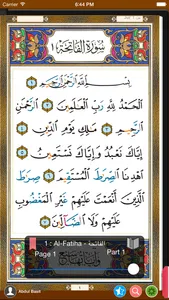 Carrier 6:44 PM
سورة الفاتحة ١
بِسْمِ اللَّهِ الرَّحْمَٰنِ الرَّحِيمِ ١
الْحَمْدُ لِلَّهِ رَبِّ الْعَالَمِينَ ٢ الرَّحْمَٰنِ
الرَّحِيمِ ٣ مَالِكِ يَوْمِ الدِّينِ ٤
إِيَّاكَ نَعْبُدُ وَإِيَّاكَ نَسْتَعِينُ ٥
اهْدِنَا الصِّرَاطَ الْمُسْتَقِيمَ ٦ صِرَاطَ
الَّذِينَ أَنْعَمْتَ عَلَيْهِمْ غَيْرِ الْمَغْضُوبِ
عَلَيْهِمْ وَلَا الضَّالِّينَ ٧
1 : Al-Fatiha - الفاتحة
Page 1 Part 1
Abdul Basit